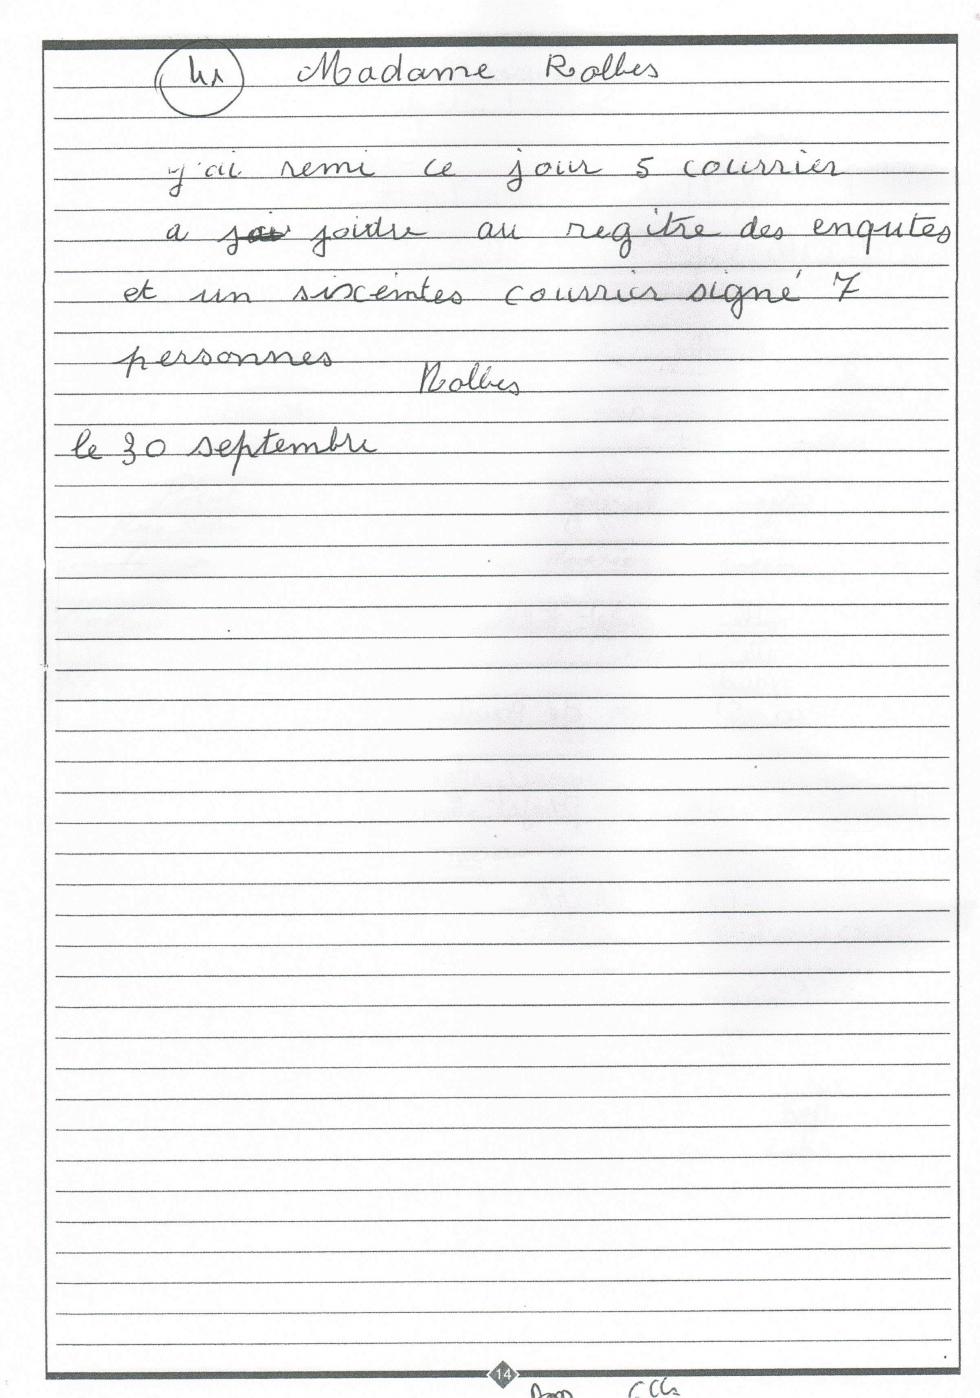 Madame Rolbes
j'ai remi ce jour 5 courrier
a joidre au regitre des enqutes
et un sixcemtes courrier signé 7
personnes
Rolbes
le 30 septembre
14